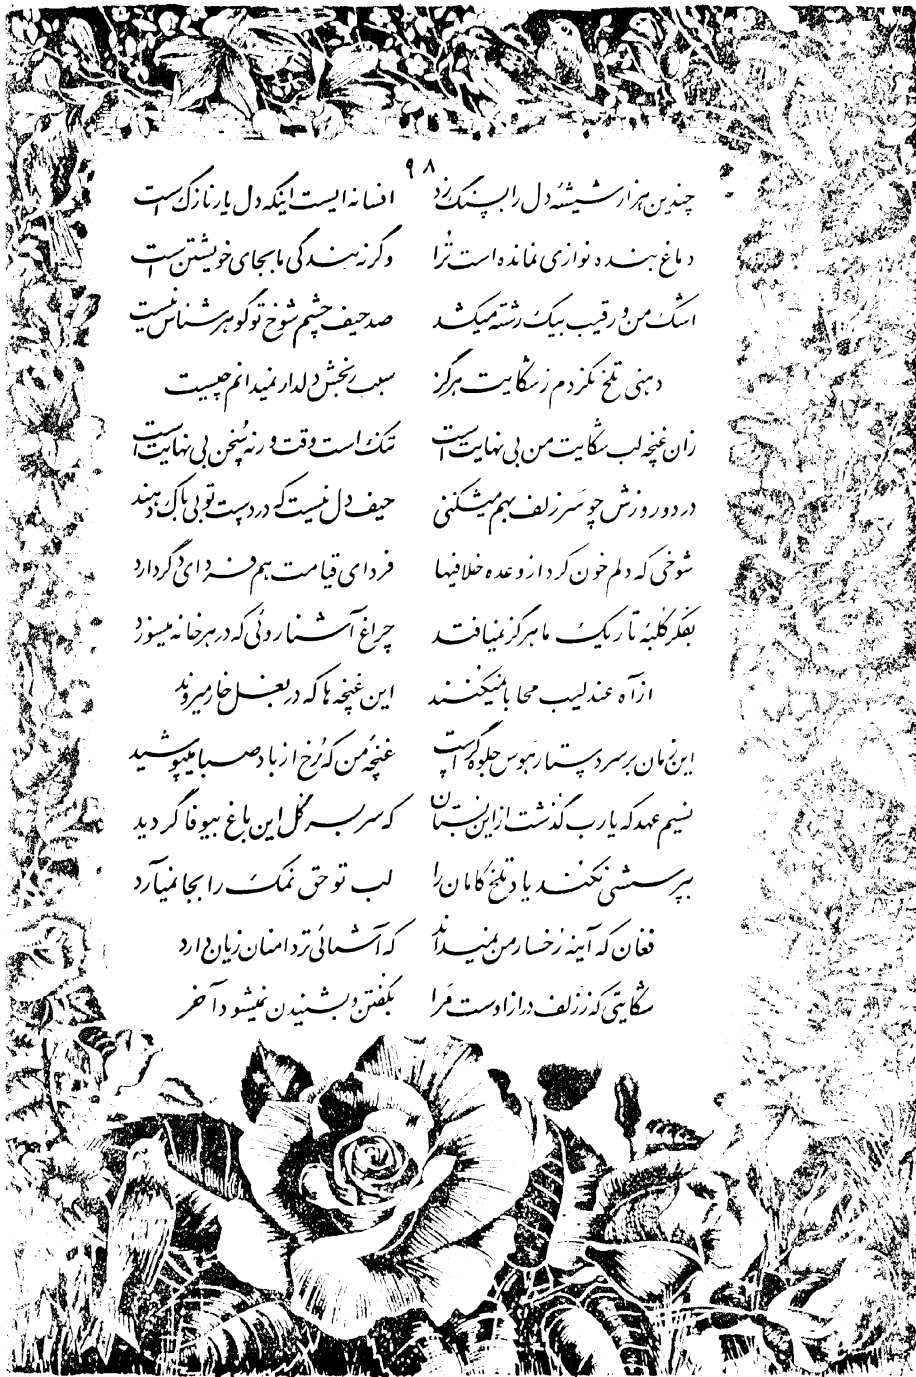 ۹۸
چندین هزار شیشهٔ دل را بسنگ زد افسانه ایست اینکه دل یار نازک است
دماغ بنده نوازی نمانده است ترا وگرنه بندگی ما بجای خویشتن است
اشک من و رقیب بیک رشته میکشد صد حیف چشم شوخ تو گوهرشناس نیست
دهنی تلخ نکردم ز شکایت هرگز سبب رنجش دلدار نمیدانم چیست
زان غنچه لب شکایت من بی نهایت است تنگ است وقت ورنه سخن بی نهایت است
در دور و زش چو سر زلف بهم میشکنی حیف دل نیست که در دست تو بی باک دهند
شوخی که دلم خون کرد از وعده خلافیها فردای قیامت هم فردای دگر دارد
بفکر کلبهٔ تاریک ما هرگز نیافتد چراغ آشنا روئی که در هر خانه میسوزد
از آه عندلیب محابا نمیکنند این غنچه ها که در بغل خار میروند
این زمان بر سر دستار هوس جلوه گر است غنچهٔ من که رخ از باد صبا میپوشید
نسیم عهد که یارب گذشت ازین بستان که سر بسر گل این باغ بیوفا گردید
بپرسشی نکند یاد تلخ کامان را لب تو حق نمک را بجا نمیآرد
فغان که آینه رخسار من نمیداند که آشنائی تردامنان زیان دارد
شکایتی که ز زلف دراز اوست مرا بگفتن و بشنیدن نمیشود آخر